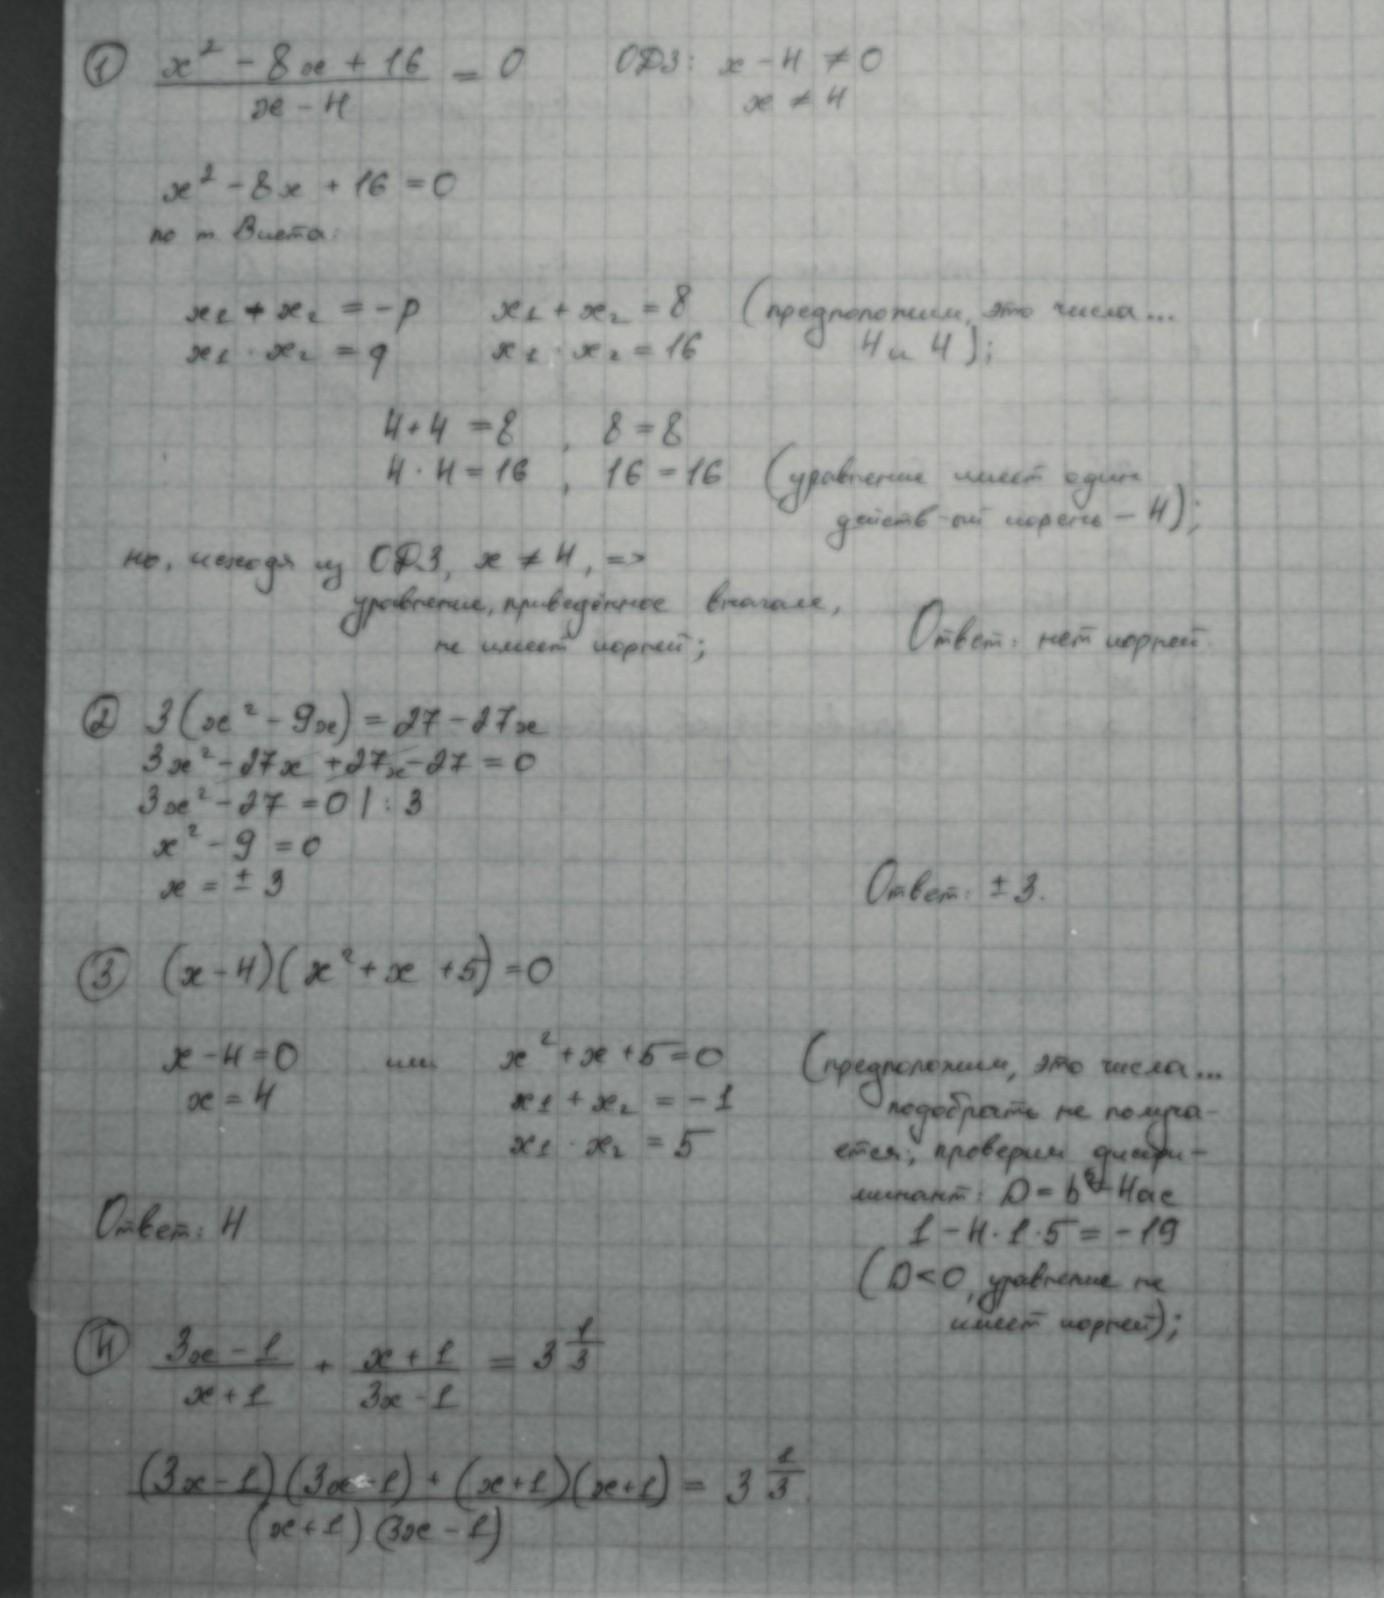 ① (x² - 8x + 16)/(x - 4) = 0   ОДЗ: x - 4 ≠ 0
x ≠ 4
x² - 8x + 16 = 0
по т. Виета:
x₁ + x₂ = -p   x₁ + x₂ = 8   (предположим, это числа...
x₁ · x₂ = q   x₁ · x₂ = 16   4 и 4);
4+4 = 8 , 8 = 8
4 · 4 = 16 , 16 = 16   (уравнение имеет один
действ-ый корень - 4);
но, исходя из ОДЗ, x ≠ 4, =>
уравнение, приведённое вначале,
не имеет корней;   Ответ: нет корней.
② 3(x² - 9x) = 27 - 27x
3x² - 27x + 27x - 27 = 0
3x² - 27 = 0 | : 3
x² - 9 = 0
x = ± 3   Ответ: ± 3.
③ (x - 4)(x² + x + 5) = 0
x - 4 = 0   или   x² + x + 5 = 0   (предположим, это числа...
x = 4   x₁ + x₂ = -1   подобрать не получа-
x₁ · x₂ = 5   ется; проверим дискри-
минант: D = b² - 4ac
Ответ: 4   1 - 4 · 1 · 5 = -19
(D < 0, уравнение не
имеет корней);
④ (3x - 1)/(x + 1) + (x + 1)/(3x - 1) = 3 1/3
((3x - 1)(3x - 1) + (x + 1)(x + 1))/((x + 1)(3x - 1)) = 3 1/3